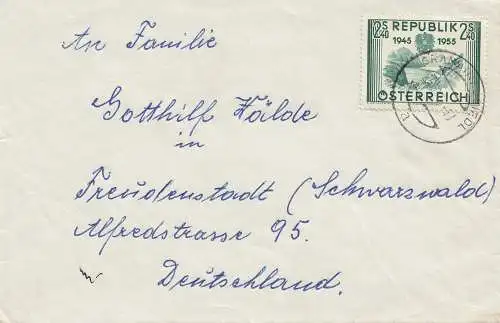 An Familie
Gotthilf Hälde
in
Freudenstadt (Schwarzwald)
Alfredstrasse 95.
Deutschland.
2S 40 REPUBLIK 2S 40
1945 1955
ÖSTERREICH